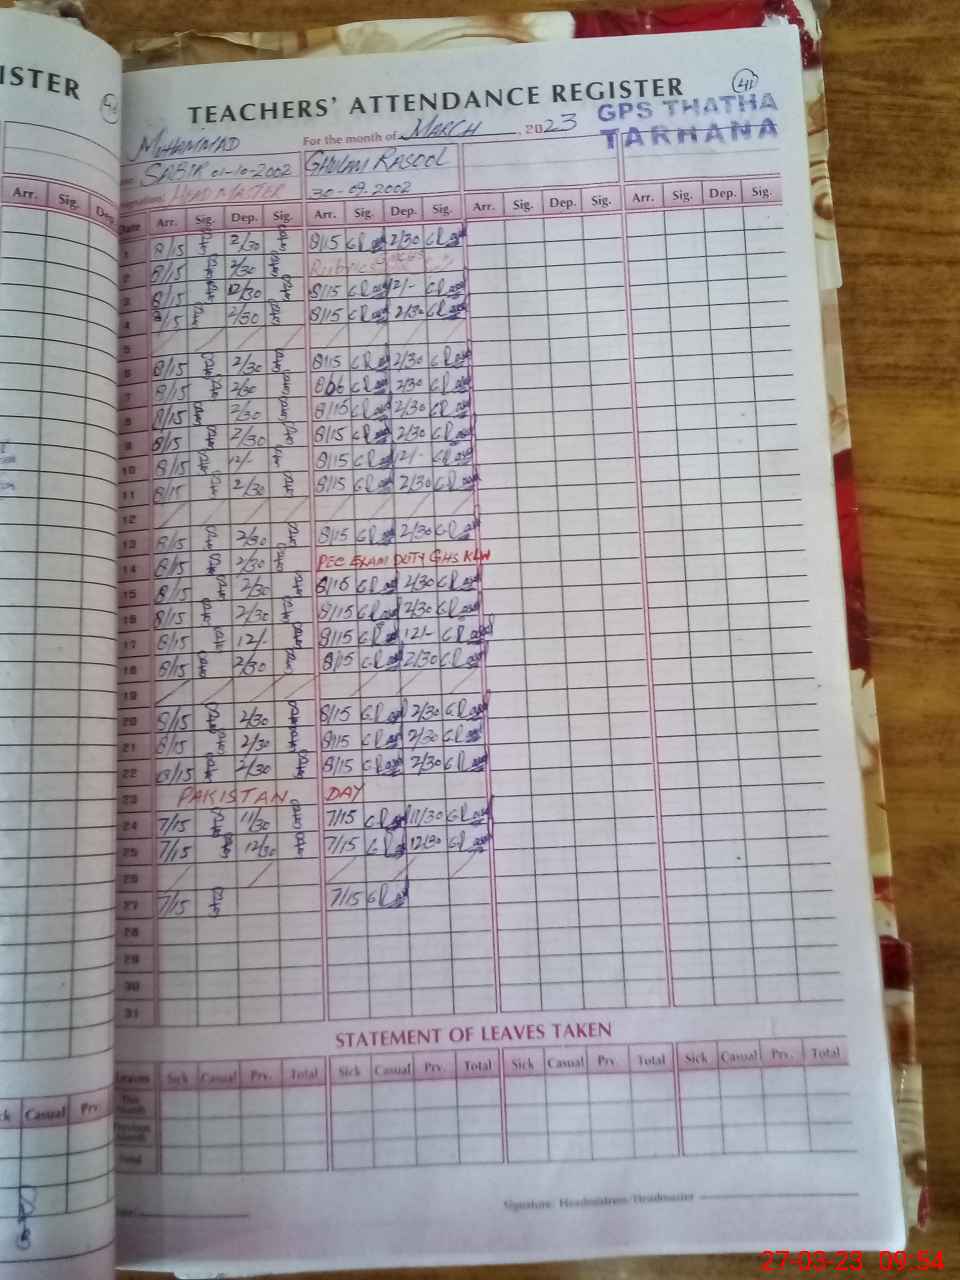 ISTER
TEACHERS' ATTENDANCE REGISTER
41
GPS THATHA
TARHANA
For the month of MARCH, 2023
MUHAMMAD
SABIR 01-10-2002
HEAD MASTER
GHULAM RASOOL
30-09-2002
Arr. Sig. Dep.
Date Arr. Sig. Dep. Sig. Arr. Sig. Dep. Sig. Arr. Sig. Dep. Sig. Arr. Sig. Dep. Sig.
1 8/15 2/30 8/15 GR 2/30 GR
2 8/15 2/30 Rubrics
3 8/15 12/30 8/15 GR 12/- GR
4 8/15 2/30 8/15 GR 2/30 GR
5
6 8/15 2/30 8/15 GR 2/30 GR
7 8/15 2/30 GR 2/30 GR
8 8/15 2/30 8/15 GR 2/30 GR
9 8/15 2/30 8/15 GR 2/30 GR
10 8/15 12/- 8/15 GR 12/- GR
11 8/15 2/30 8/15 GR 2/30 GR
12
13 8/15 2/30 8/15 GR 2/30 GR
14 8/15 2/30 PEC EXAM DUTY GHS KLW
15 8/15 2/30 8/15 GR 2/30 GR
16 8/15 2/30 8/15 GR 2/30 GR
17 8/15 12/- 8/15 GR 12/- GR
18 8/15 2/30 8/15 GR 2/30 GR
19
20 8/15 2/30 8/15 GR 2/30 GR
21 8/15 2/30 8/15 GR 2/30 GR
22 8/15 2/30 8/15 GR 2/30 GR
23 PAKISTAN DAY
24 7/15 11/30 7/15 GR 11/30 GR
25 7/15 12/30 7/15 GR 12/30 GR
26
27 7/15 7/15 GR
28
29
30
31
STATEMENT OF LEAVES TAKEN
Leaves Sick Casual Prv. Total Sick Casual Prv. Total Sick Casual Prv. Total Sick Casual Prv. Total
This Month
Previous Month
Total
Casual Prv.
Signature: Headmistress/Headmaster
27-03-23 09:54